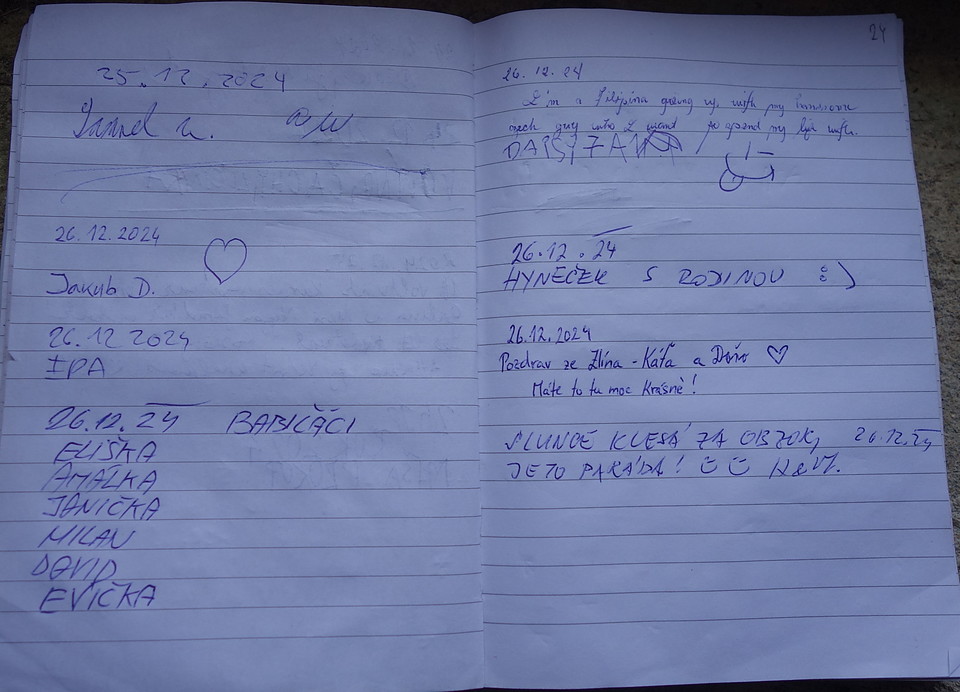 25.12.2024
26.12.2024
Jakub D.
26.12 2024
IPA
26.12.24 BABIČÁCI
ELIŠKA
AMÁLKA
JANIČKA
MILAN
DAVID
EVIČKA
24
26.12.24
I'm a Filipina my
I want to spend my life with.
26.12.24
HYNEČEK S RODINOU :)
26.12.2024
Pozdrav ze Zlína - Káťa a
Máte to tu moc krásné!
SLUNCE KLESÁ ZA OBZOR, 26.12.24
JE TO PARÁDA!